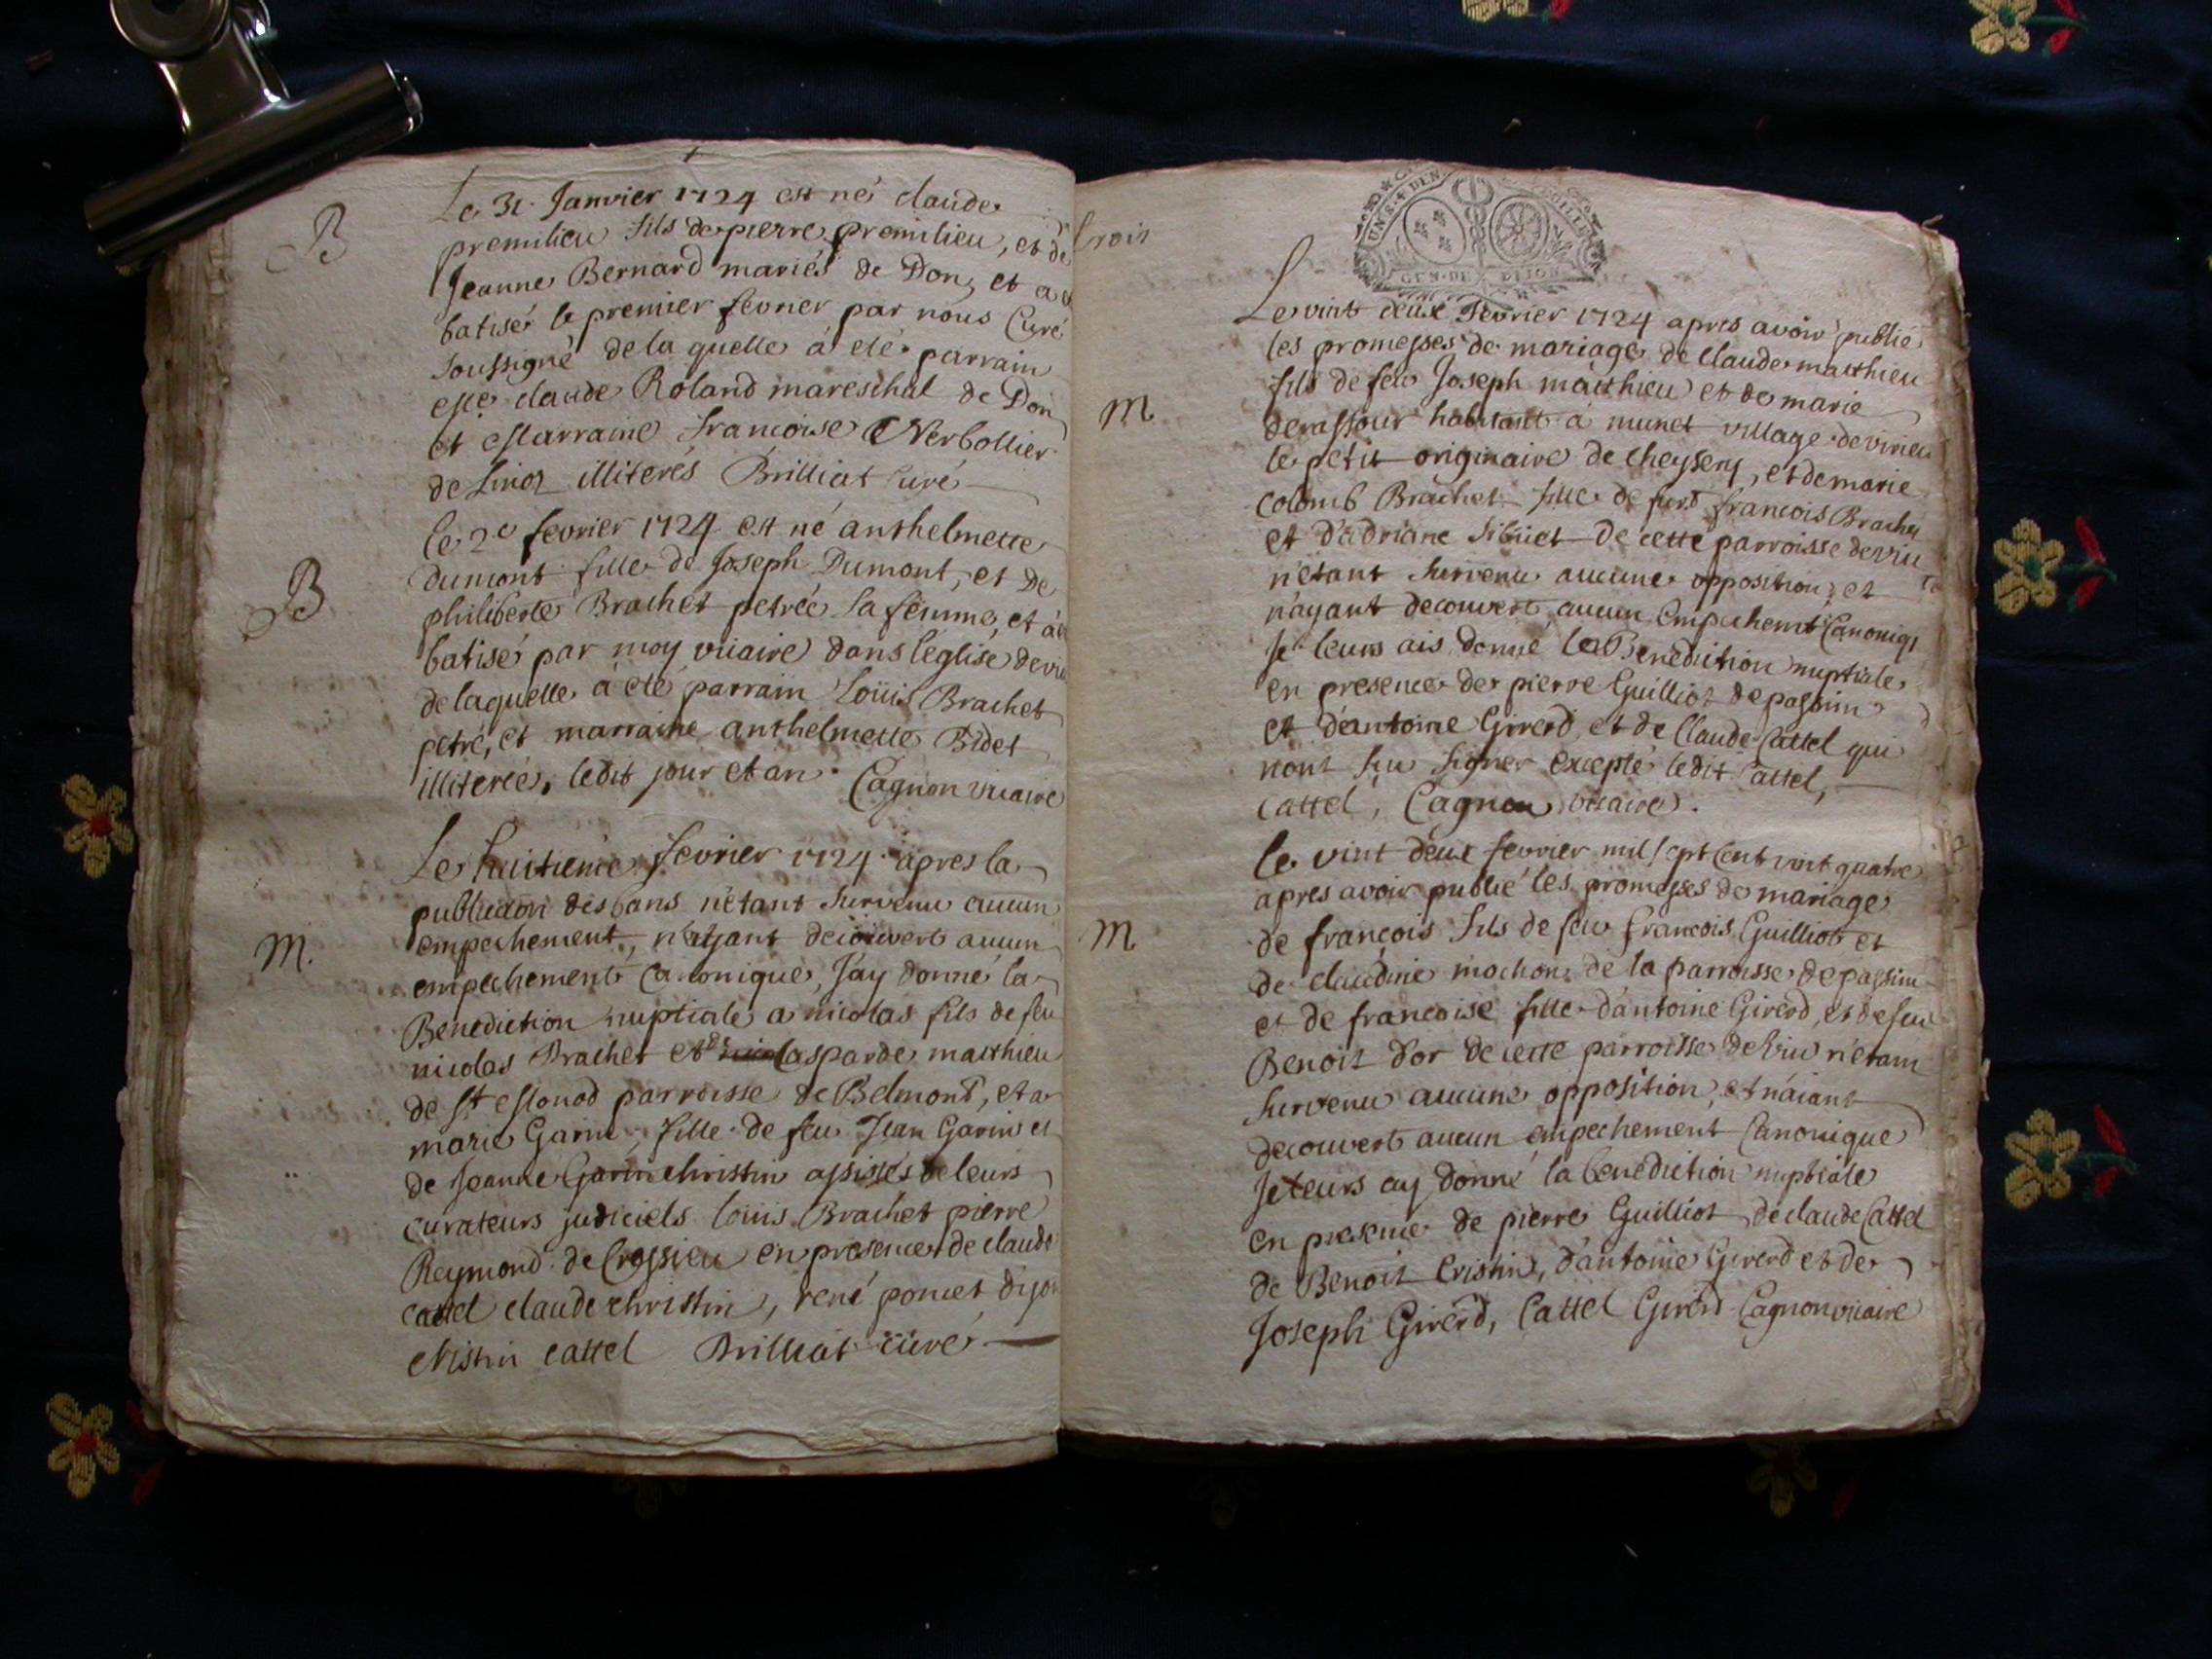 B
Le 31 Janvier 1724 est né claude
premilieu fils de pierre premilieu, et de
Jeanne Bernard mariés de Don, et a
batisé le premier fevrier par nous Curé
soussigné de la quelle á eté parrain
claude Roland mareschal de Don
et marraine francoise Verbollier
de illiterés Brilliat curé
B
le 2e fevrier 1724 est né anthelmette
dumont fille de Joseph Dumont, et de
philiberte Brachet petrée sa femme, et á
batisé par moy vicaire dans l'église de viu
de laquelle á eté parrain Loüis Brachet
petré, et marraine anthelmette Bidet
illiterés, ledit jour et an. Cagnon vicaire
M.
Le huitieme fevrier 1724 apres la
publication des bans n'etant survenu aucun
empechement, n'aÿant decouvert aucun
empechement Canonique, J'ay donné la
Benediction nuptiale a nicolas fils de feu
nicolas Brachet et de Gasparde matthieu
de st parroisse de Belmont, et a
marie Garin fille de feu Jean Garin et
de Jeanne christin assistés de leurs
curateurs judiciels loüis Brachet pierre
Reymond de Crossieu en presence de claude
cattel claude christin, rené poncet
christin cattel Brilliat cüré
trois
UN.S.4 DEN
GEN. DE DIJON
M
Le vint deux fevrier 1724 apres avoir publié
les promesses de mariage de Claude matthieu
fils de feu Joseph matthieu et de marie
derassour habitant á munet village de virieu
le petit originaire de cheysery, et de marie
colomb Brachet fille de francois Brachet
et d'adriane Sibuet de cette parroisse de viu
n'etant survenu aucune opposition et
n'ayant decouvert aucun empechemt Canoniq
Je leurs ais donné la Benediction nuptiale
en presence de pierre Guilliot de passin
et d'antoine Girerd et de Claude Cattel qui
nont sçu signer excepté ledit Cattel,
Cattel, Cagnon vicaire.
M
le vint deux fevrier mil sept cent vint quatre
apres avoir publié les promesses de mariage
de françois fils de feu francois Guilliot et
de claudine mochon de la parroisse de passin
et de francoise fille d'antoine Girerd, et de feu
Benoit d'or de cette parroisse de viu n'etant
survenu aucune opposition, et n'aiant
decouvert aucun empechement Canonique
Je leurs ay donné la benediction nuptiale
en presence de pierre Guilliot de claude Cattel
de Benoit Cristin, d'antoine Girerd et de
Joseph Girerd, Cattel Girerd Cagnon vicaire